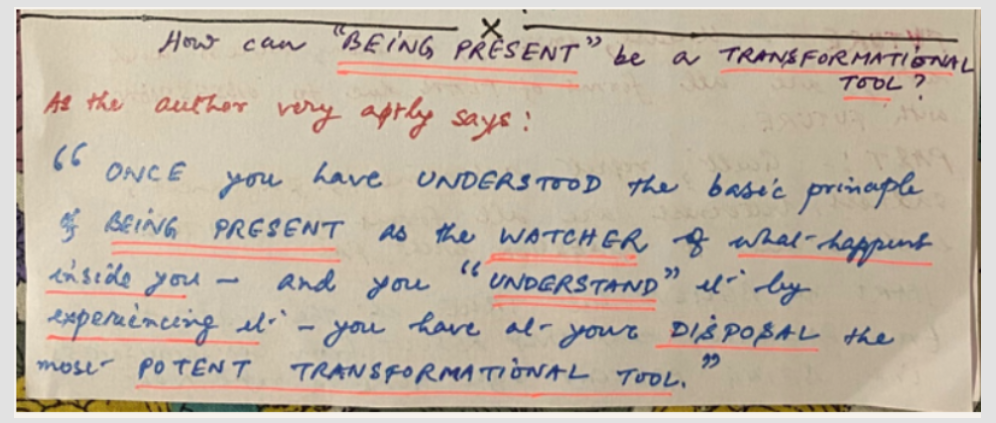 X
How can "BEING PRESENT" be a TRANSFORMATIONAL
TOOL?
As the author very aptly says:
"ONCE you have UNDERSTOOD the basic prinaple
of BEING PRESENT as the WATCHER of what happens
inside you - and you "UNDERSTAND" it by
experiencing it - you have at your DISPOSAL the
most POTENT TRANSFORMATIONAL TOOL."